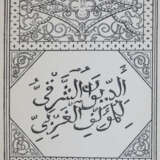 الديوان الشرقي
للمؤلف الغربي